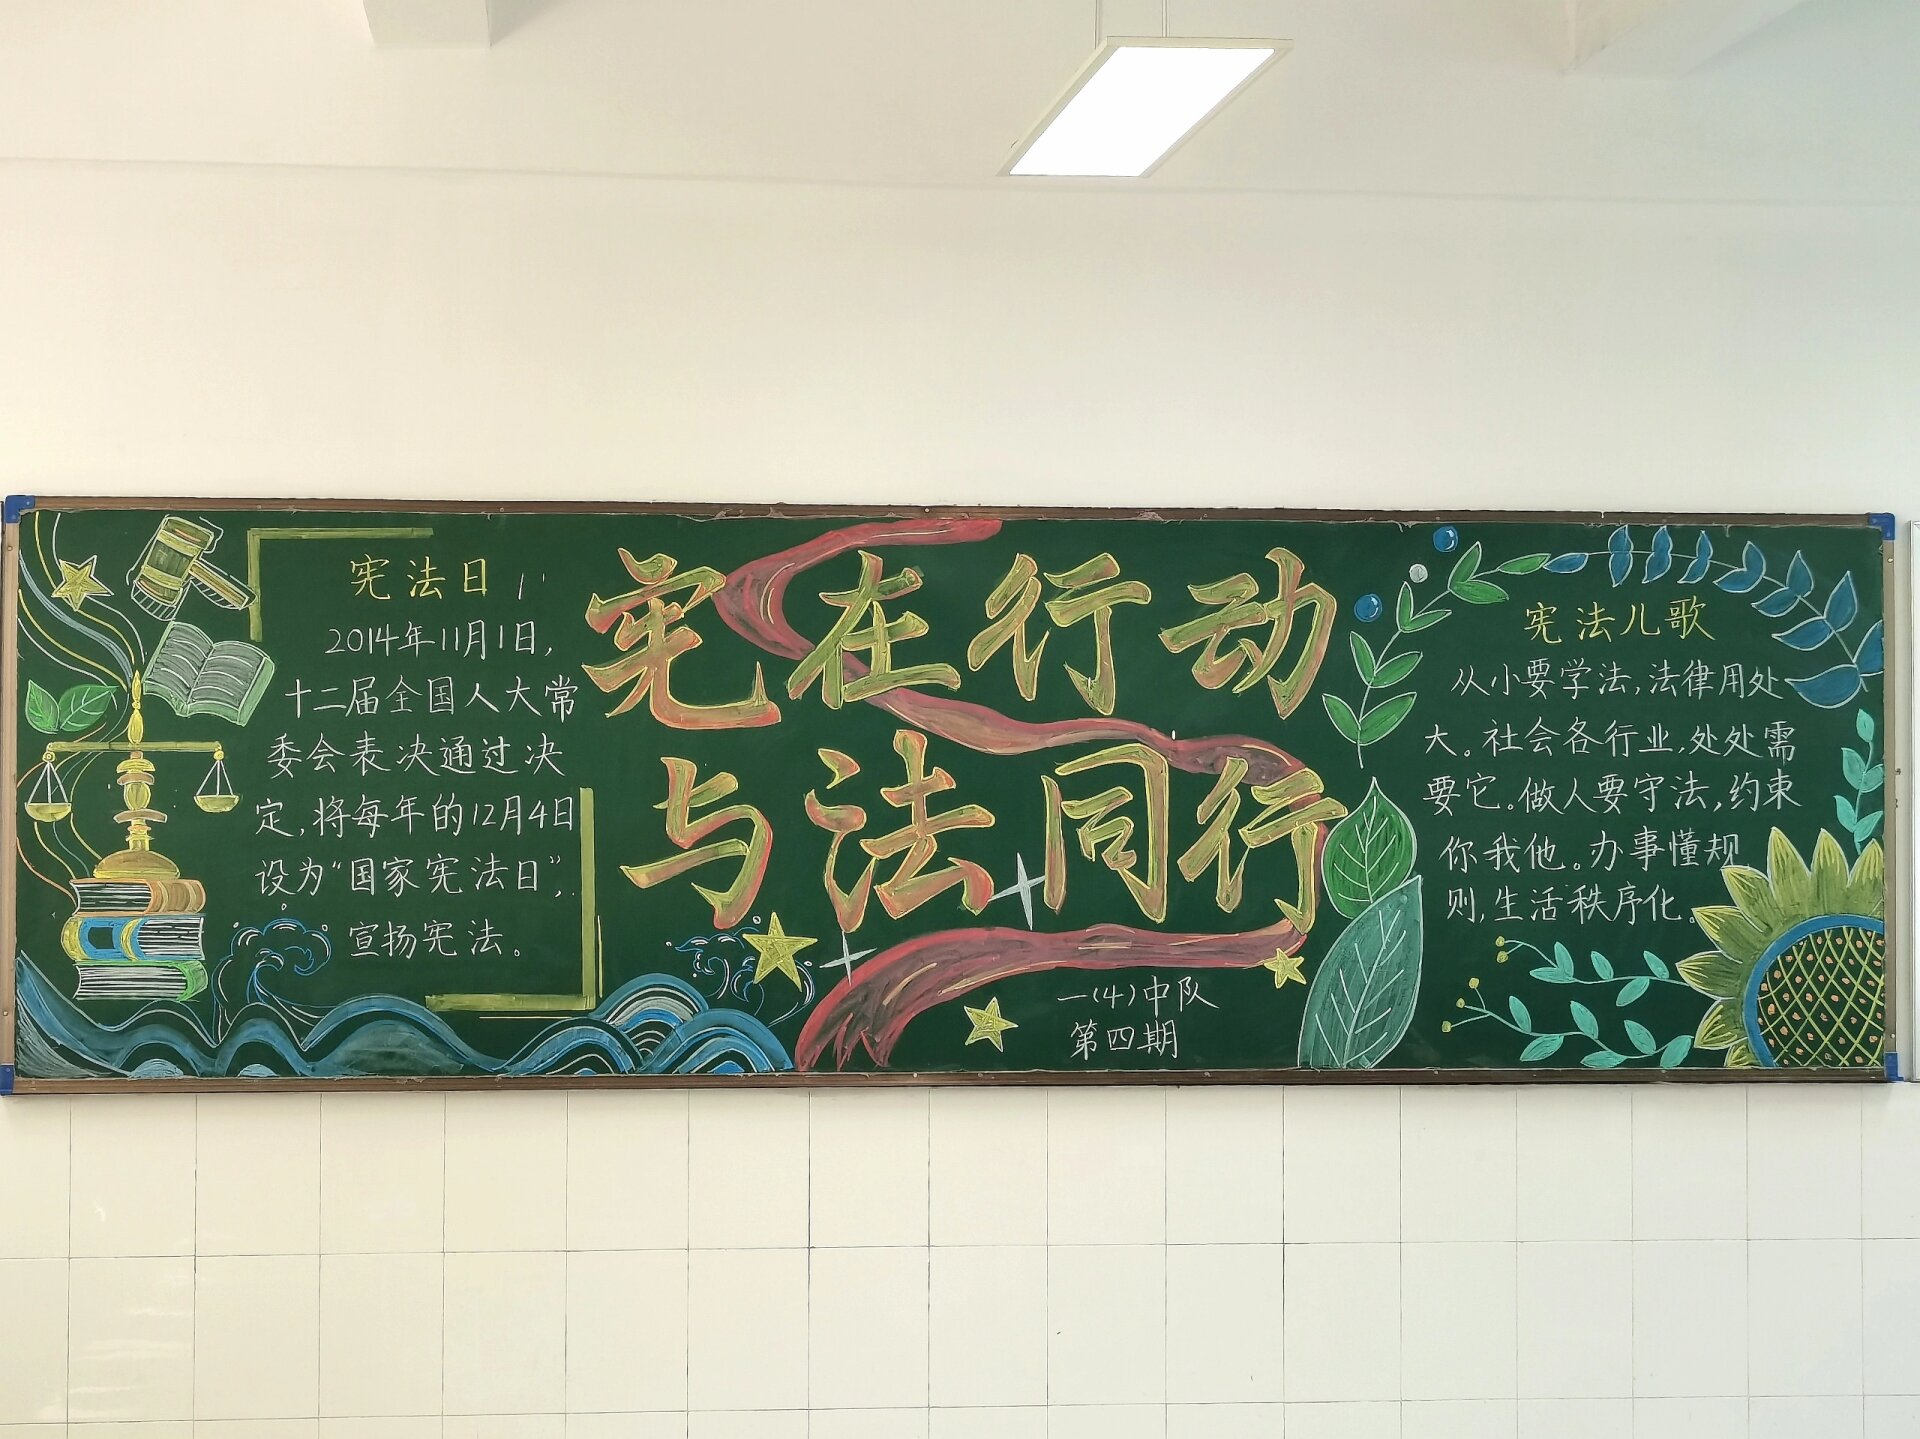 宪法日
2014年11月1日,
十二届全国人大常
委会表决通过决
定,将每年的12月4日
设为“国家宪法日”,
宣扬宪法。
宪在行动
与法同行
一(4)中队
第四期
宪法儿歌
从小要学法,法律用处
大。社会各行业,处处需
要它。做人要守法,约束
你我他。办事懂规
则,生活秩序化。